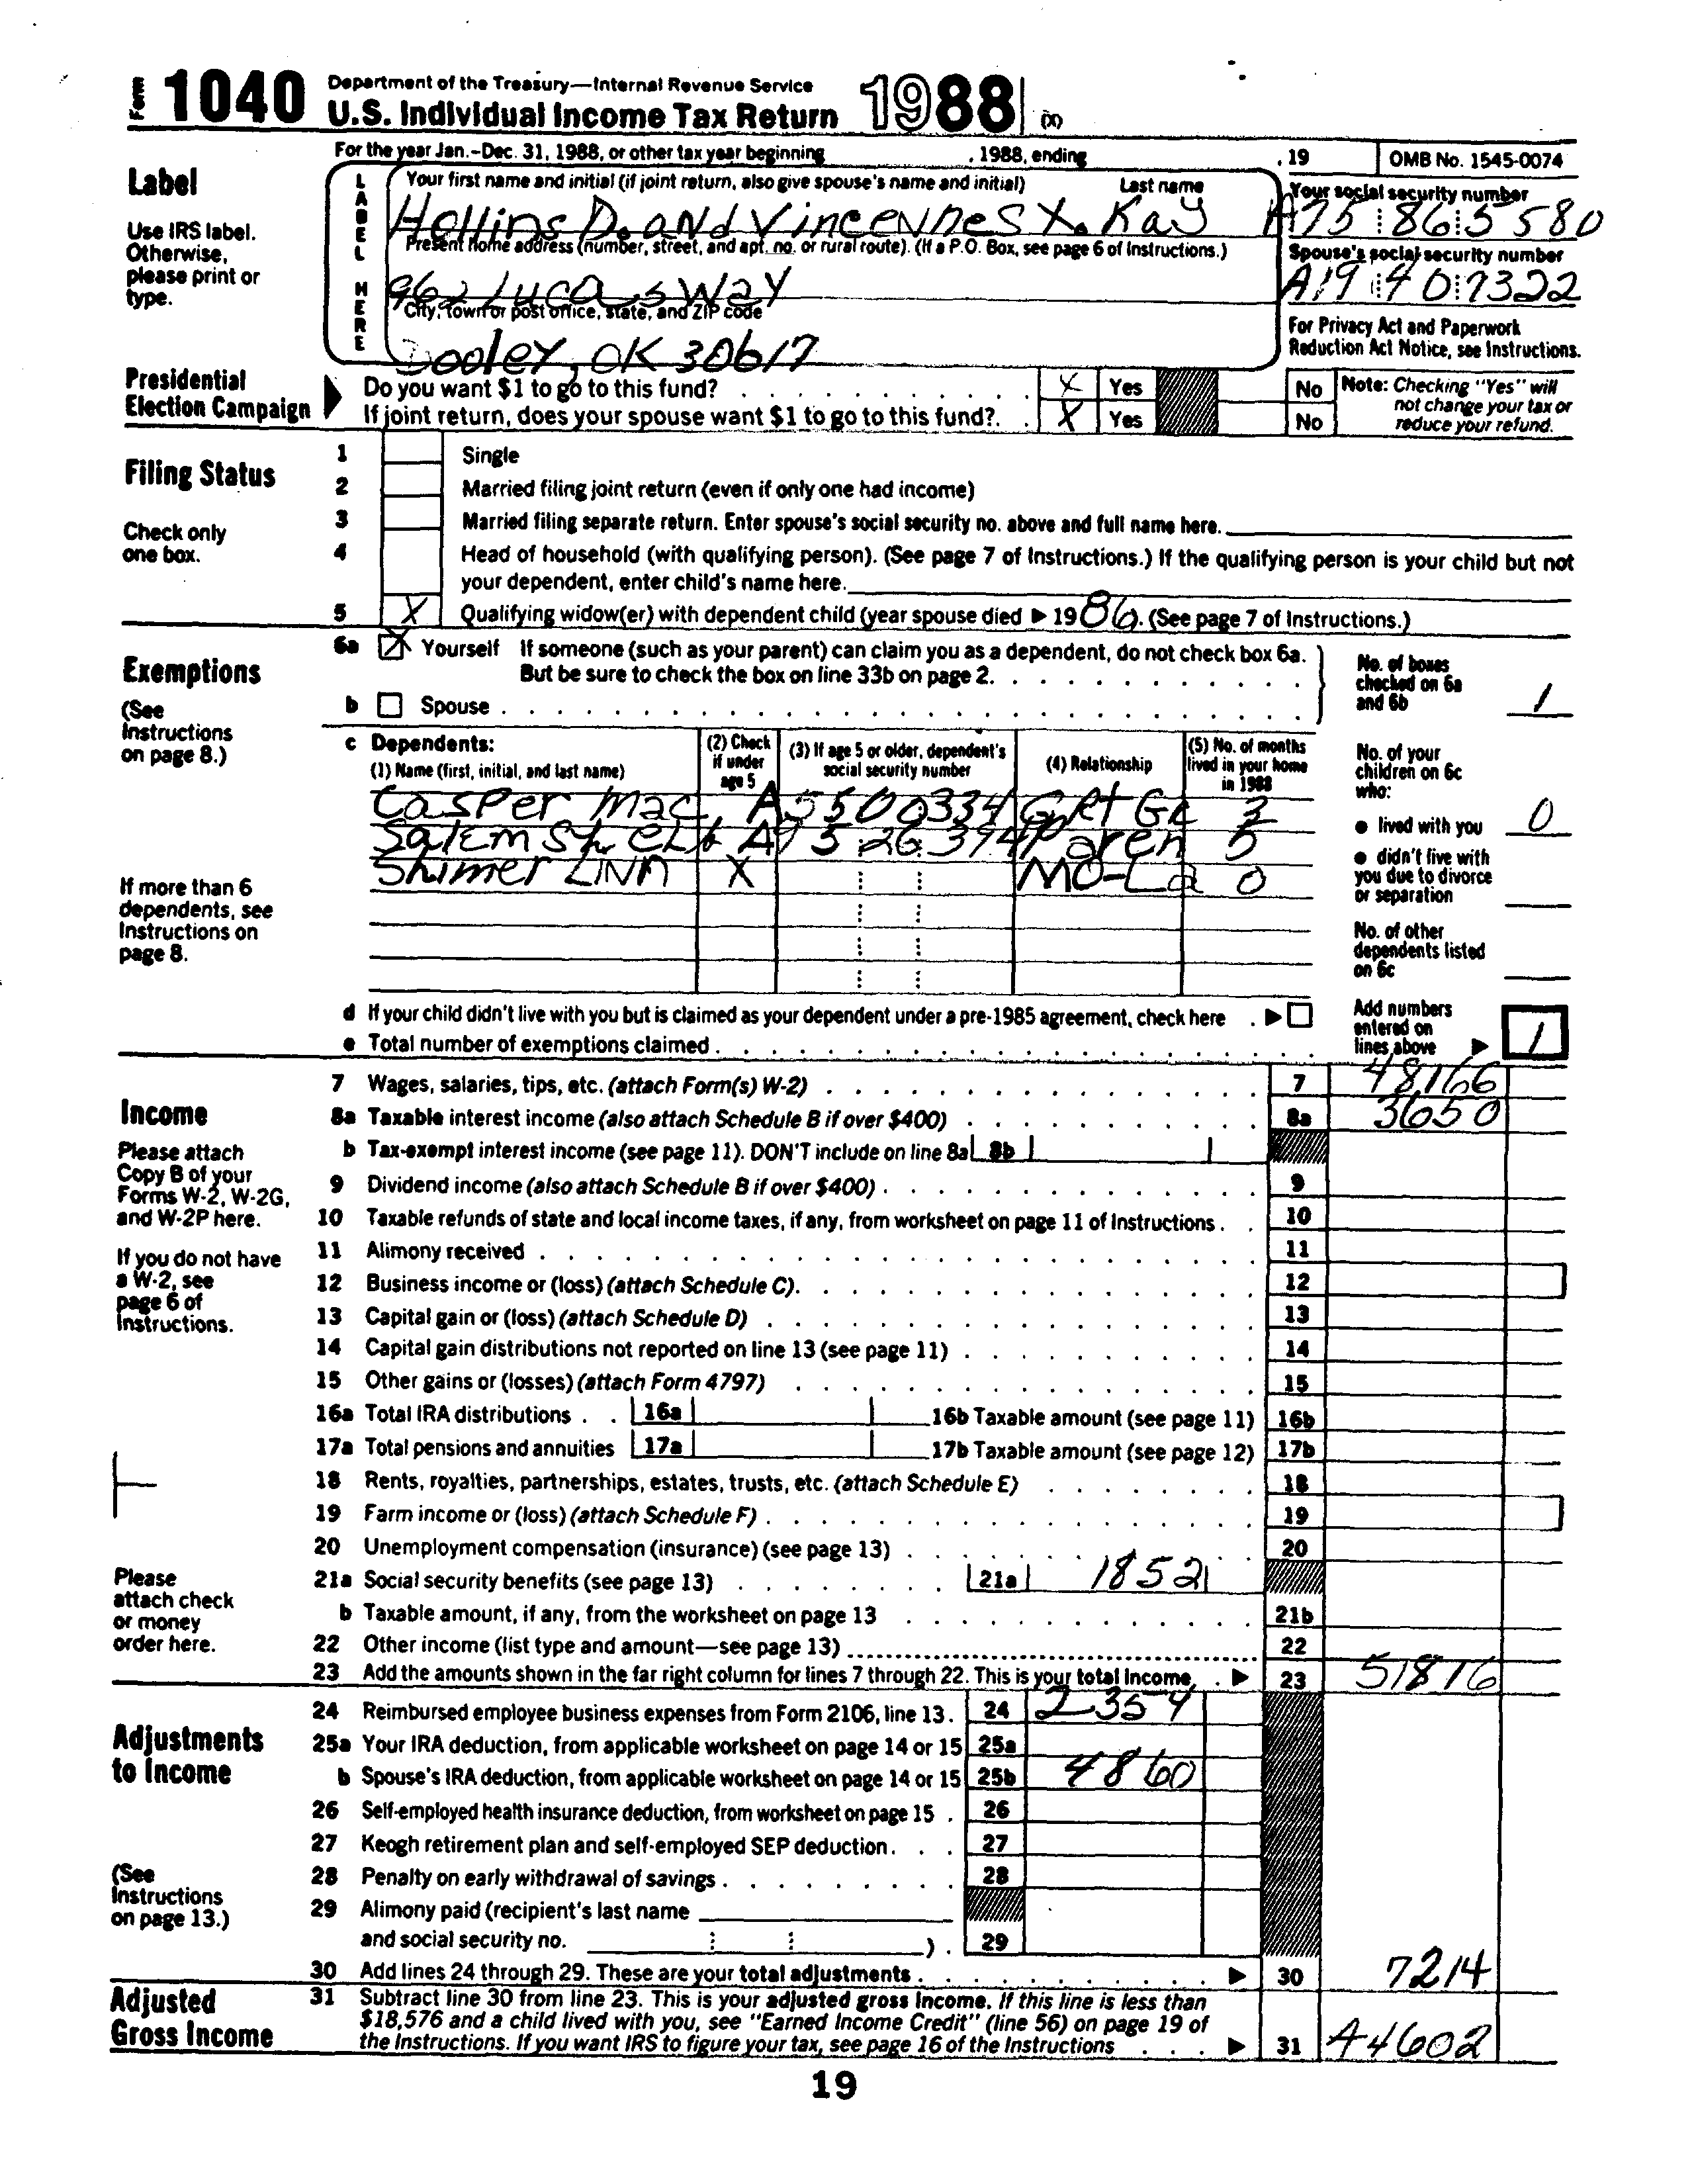 Form 1040 Department of the Treasury—Internal Revenue Service
U.S. Individual Income Tax Return 1988 (X)
For the year Jan.-Dec. 31, 1988, or other tax year beginning , 1988, ending , 19 OMB No. 1545-0074
Label
Use IRS label. Otherwise, please print or type.
LABEL HERE
Your first name and initial (if joint return, also give spouse's name and initial) Last name
Hollins D. and Vincennes X. Kay
Your social security number
A75 86 5580
Present home address (number, street, and apt. no. or rural route). (If a P.O. Box, see page 6 of Instructions.)
962 Lucas Way
Spouse's social security number
A19 40 7322
City, town or post office, state, and ZIP code
Dooley, OK 30617
For Privacy Act and Paperwork Reduction Act Notice, see Instructions.
Presidential Election Campaign
Do you want $1 to go to this fund? X Yes No
If joint return, does your spouse want $1 to go to this fund? X Yes No
Note: Checking "Yes" will not change your tax or reduce your refund.
Filing Status
Check only one box.
1 Single
2 Married filing joint return (even if only one had income)
3 Married filing separate return. Enter spouse's social security no. above and full name here.
4 Head of household (with qualifying person). (See page 7 of Instructions.) If the qualifying person is your child but not
your dependent, enter child's name here.
5 X Qualifying widow(er) with dependent child (year spouse died ▶ 19 86). (See page 7 of Instructions.)
Exemptions
(See Instructions on page 8.)
6a X Yourself If someone (such as your parent) can claim you as a dependent, do not check box 6a.
But be sure to check the box on line 33b on page 2.
b Spouse
No. of boxes checked on 6a and 6b 1
c Dependents:
(1) Name (first, initial, and last name) (2) Check if under age 5 (3) If age 5 or older, dependent's social security number (4) Relationship (5) No. of months lived in your home in 1988
Casper Mac A5500334 Grt Gr 3
Salem A9526394 Paren 5
Shimer Linn X Mo-La 0
If more than 6 dependents, see Instructions on page 8.
No. of your children on 6c who:
● lived with you 0
● didn't live with you due to divorce or separation
No. of other dependents listed on 6c
d If your child didn't live with you but is claimed as your dependent under a pre-1985 agreement, check here ▶
e Total number of exemptions claimed
Add numbers entered on lines above ▶ 1
Income
Please attach Copy B of your Forms W-2, W-2G, and W-2P here.
If you do not have a W-2, see page 6 of Instructions.
7 Wages, salaries, tips, etc. (attach Form(s) W-2) 7 48166
8a Taxable interest income (also attach Schedule B if over $400) 8a 3650
b Tax-exempt interest income (see page 11). DON'T include on line 8a 8b
9 Dividend income (also attach Schedule B if over $400) 9
10 Taxable refunds of state and local income taxes, if any, from worksheet on page 11 of Instructions 10
11 Alimony received 11
12 Business income or (loss) (attach Schedule C) 12
13 Capital gain or (loss) (attach Schedule D) 13
14 Capital gain distributions not reported on line 13 (see page 11) 14
15 Other gains or (losses) (attach Form 4797) 15
16a Total IRA distributions 16a 16b Taxable amount (see page 11) 16b
17a Total pensions and annuities 17a 17b Taxable amount (see page 12) 17b
18 Rents, royalties, partnerships, estates, trusts, etc. (attach Schedule E) 18
19 Farm income or (loss) (attach Schedule F) 19
20 Unemployment compensation (insurance) (see page 13) 20
Please attach check or money order here.
21a Social security benefits (see page 13) 21a 1852
b Taxable amount, if any, from the worksheet on page 13 21b
22 Other income (list type and amount—see page 13) 22
23 Add the amounts shown in the far right column for lines 7 through 22. This is your total income ▶ 23 51816
Adjustments to Income
(See Instructions on page 13.)
24 Reimbursed employee business expenses from Form 2106, line 13. 24 2354
25a Your IRA deduction, from applicable worksheet on page 14 or 15 25a
b Spouse's IRA deduction, from applicable worksheet on page 14 or 15 25b 4860
26 Self-employed health insurance deduction, from worksheet on page 15 26
27 Keogh retirement plan and self-employed SEP deduction 27
28 Penalty on early withdrawal of savings 28
29 Alimony paid (recipient's last name
and social security no. ) 29
30 Add lines 24 through 29. These are your total adjustments ▶ 30 7214
Adjusted Gross Income
31 Subtract line 30 from line 23. This is your adjusted gross income. If this line is less than
$18,576 and a child lived with you, see "Earned Income Credit" (line 56) on page 19 of
the Instructions. If you want IRS to figure your tax, see page 16 of the Instructions ▶ 31 44602
19